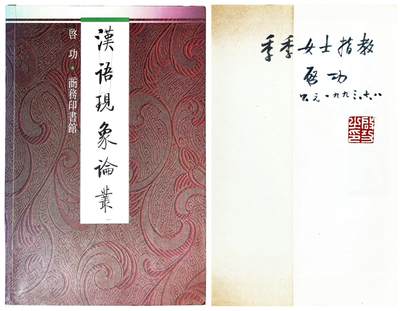 漢語現象論叢
啓功・商務印書館
季季女士指教
啓功
一九九三.六.八